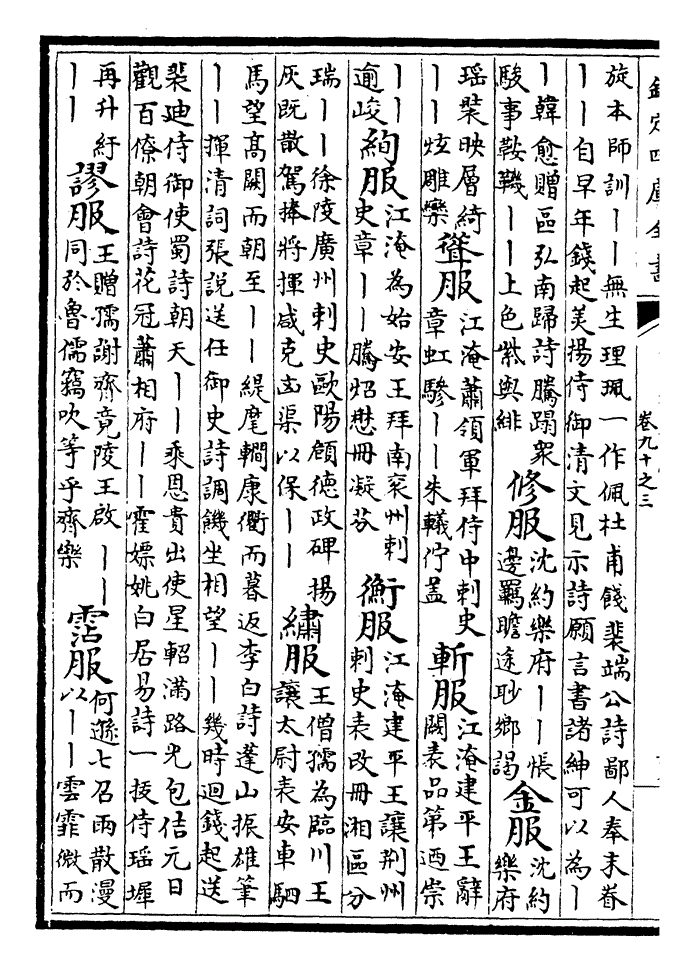 欽定四庫全書
卷九十之三
旋本師訓丨丨無生理珮一作佩杜甫餞裴端公詩鄙人奉末眷
丨丨自早年錢起美揚侍御清文見示詩願言書諸紳可以為丨
丨韓愈贈區弘南歸詩騰蹋衆
駿事鞍鞿丨丨上色紫與緋
修服
沈約樂府丨丨悵
邊羈瞻途眇鄉謁
金服
沈約
樂府
瑶裝映層綺
丨丨炫雕欒
聳服
江淹蕭領軍拜侍中刺史
章虹驂丨丨朱轙佇蓋
斬服
江淹建平王辭
闕表品第迺崇
丨丨
逾峻
絢服
江淹為始安王拜南兖州刺
史章丨丨騰炤懋冊凝芬
衡服
江淹建平王讓荆州
刺史表改冊湘區分
瑞丨丨徐陵廣州刺史歐陽頠德政碑揚
灰既散駕捧將揮咸克渠以保丨丨
繡服
王僧孺為臨川王
讓太尉表安車駟
馬望髙闕而朝至丨丨緹麾轥康衢而暮返李白詩蓬山振雄筆
丨丨揮清詞張說送任御史詩調饑坐相望丨丨幾時迴錢起送
裴迪侍御使蜀詩朝天丨丨乘恩貴出使星軺滿路光包佶元日
觀百僚朝會詩花冠蕭相府丨丨霍嫖姚白居易詩一侍瑶墀
再升紆
丨丨
謬服
王贈孺謝齊竟陵王啟丨丨
同於魯儒竊吹等乎齊樂
霑服
何遜七召雨散漫
以丨丨雲霏微而